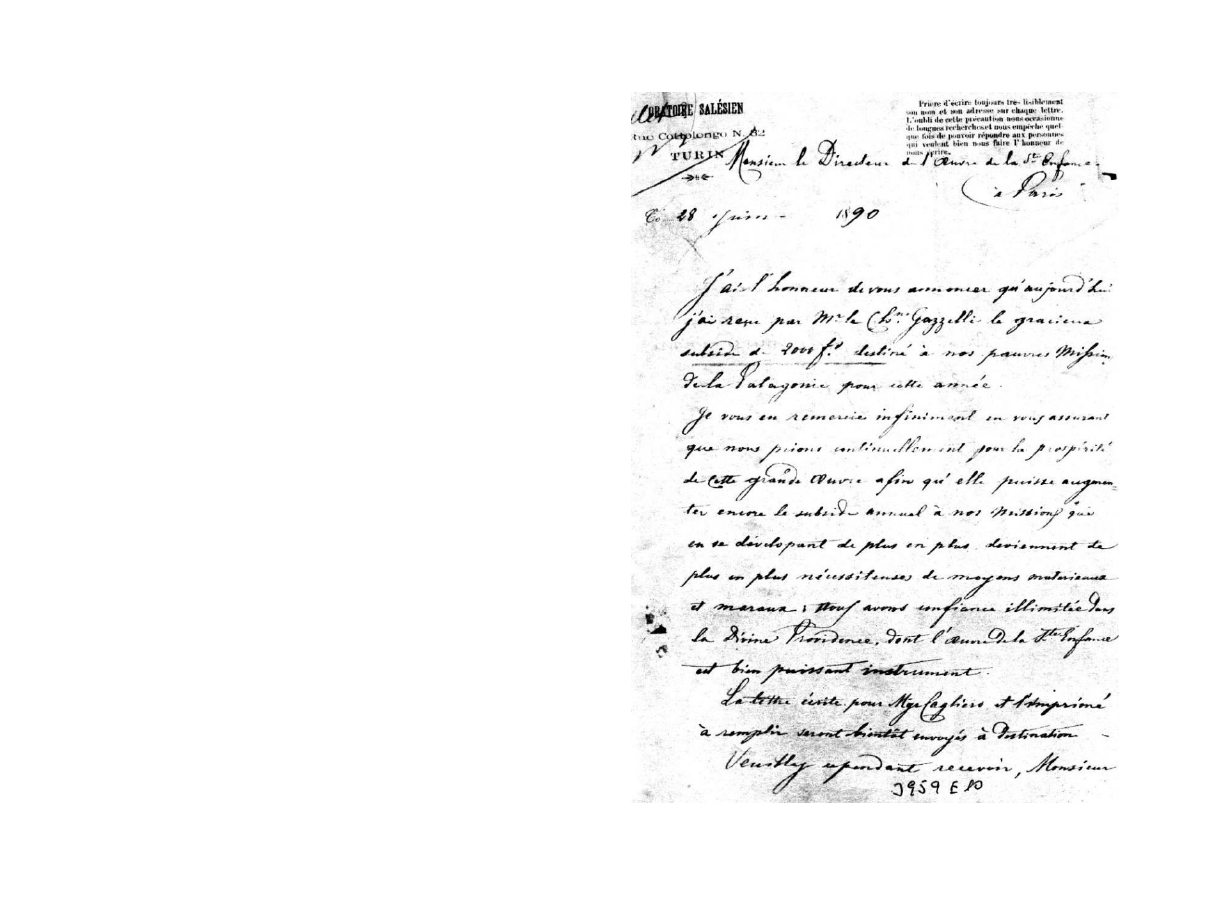 ORATOIRE SALÉSIEN
Rue Cottolengo N. 32
TURIN
Prière d'écrire toujours très lisiblement
son nom et son adresse sur chaque lettre.
L'oubli de cette précaution nous occasionne
de longues recherches et nous empêche quel-
que fois de pouvoir répondre aux personnes
qui veulent bien nous faire l'honneur de
nous écrire.
Monsieur le Directeur de l'Œuvre de la Ste Enfance
à Paris
28 1890
J'ai l'honneur de vous annoncer qu'aujourd'hui
j'ai reçu par Mr le Chne Gazzelli le gracieux
subside de 2000 f. destiné à nos pauvres Mission
de la Patagonie pour cette année.
Je vous en remercie infiniment en vous assurant
que nous prions continuellement pour la prospérité
de cette grande Œuvre afin qu'elle puisse augmen-
ter encore le subside annuel à nos Missions que
en se dévelopant de plus en plus, deviennent de
plus en plus nécessiteuses de moyens materieaux
et moraux; Nous avons confiance illimitée dans
la Divine Providence, dont l'œuvre de la Ste Enfance
est bien puissant instrument.
La lettre écrite pour Mgr Cagliero et l'imprimé
à remplir seront bientôt envoyés à Destination
Veuillez cependant recevoir, Monsieur
J959 E10